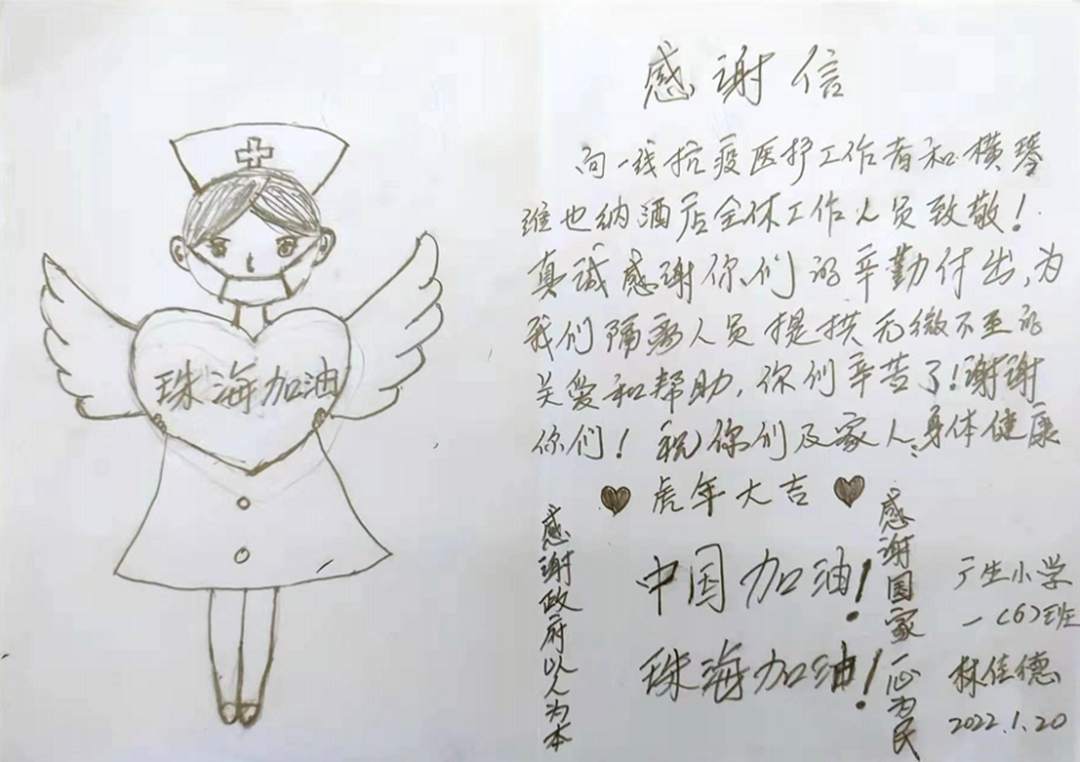 珠海加油
感谢信
向一线抗疫医护工作者和横琴
维也纳酒店全体工作人员致敬！
真诚感谢你们的辛勤付出，为
我们隔离人员提拱无微不至的
关爱和帮助，你们辛苦了！谢谢
你们！祝你们及家人：身体健康
虎年大吉
感谢政府以人为本
中国加油！
珠海加油！
感谢国家一心为民
广生小学
一（6）班
林佳德
2022.1.20